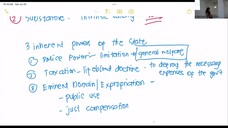 ② Substantive - intrinsic validity
3 inherent powers of the State
① Police Power - limitation → general welfare
② Taxation - lifeblood doctrine → to defray the necessary
expenses of the gov't
③ Eminent Domain / Expropriation -
- public use
- just compensation